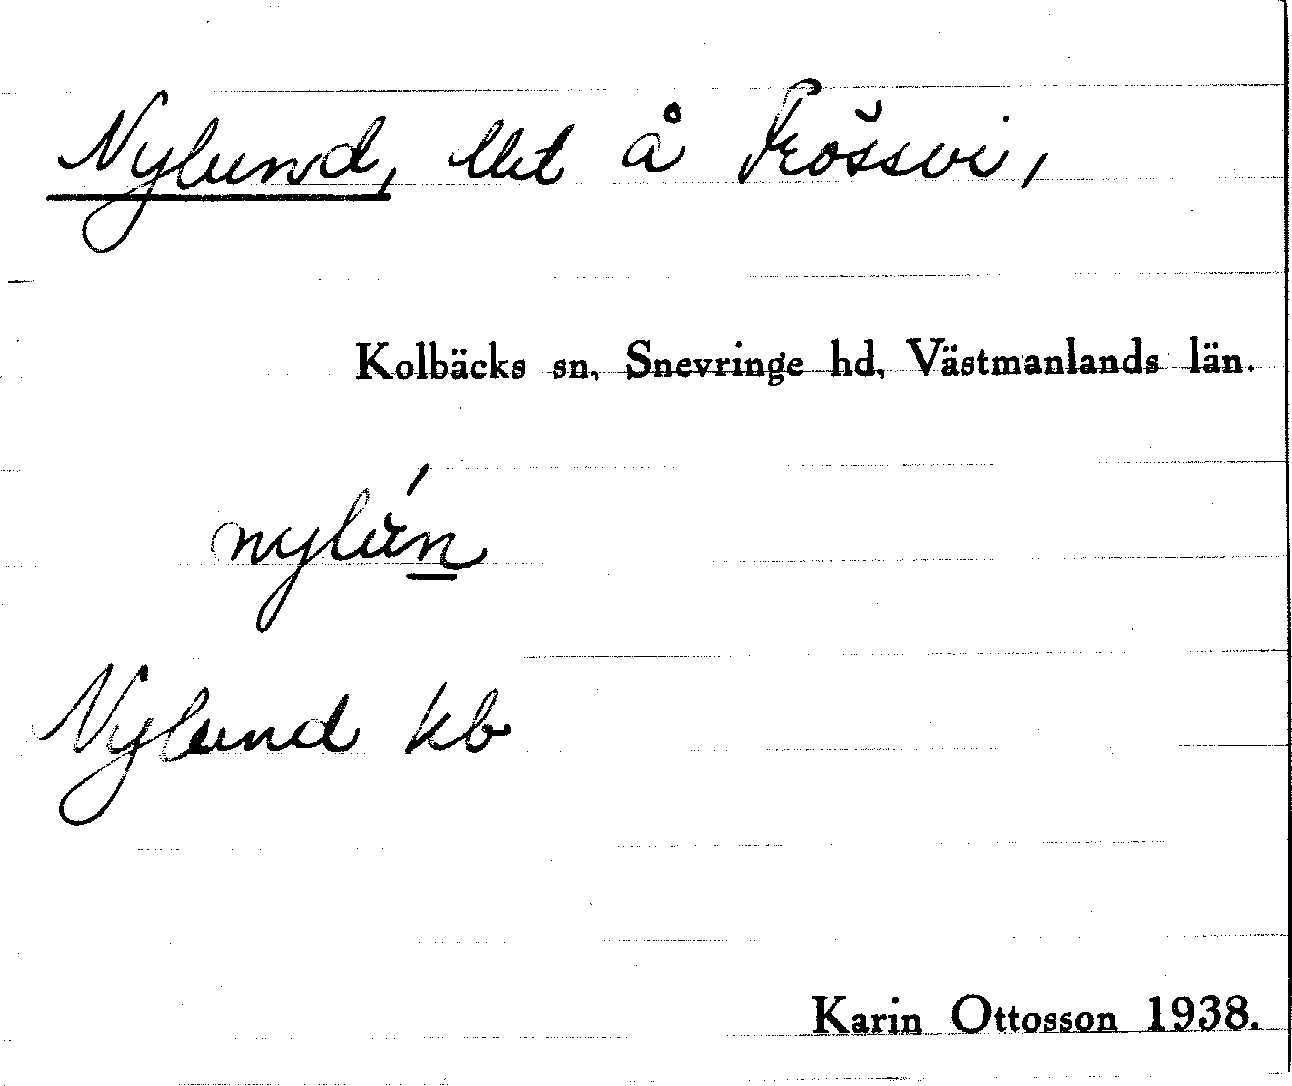 Nylund, llet å Frössvi,
Kolbäcks sn, Snevringe hd, Västmanlands län.
nylún
Nylund kb
Karin Ottosson 1938.